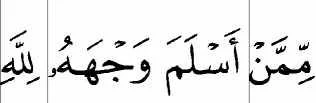 مِّمَّنْ أَسْلَمَ وَجْهَهُۥ لِلَّهِ